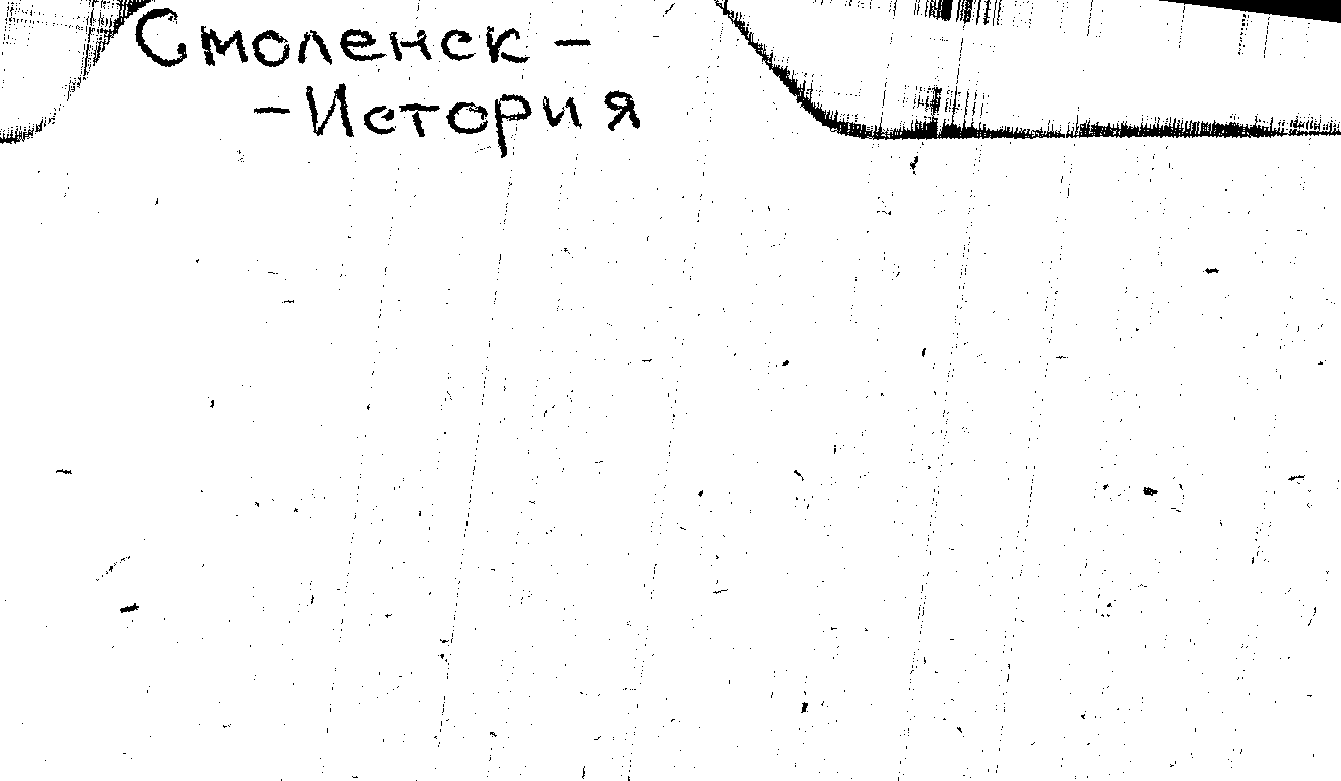 Смоленск -
- История